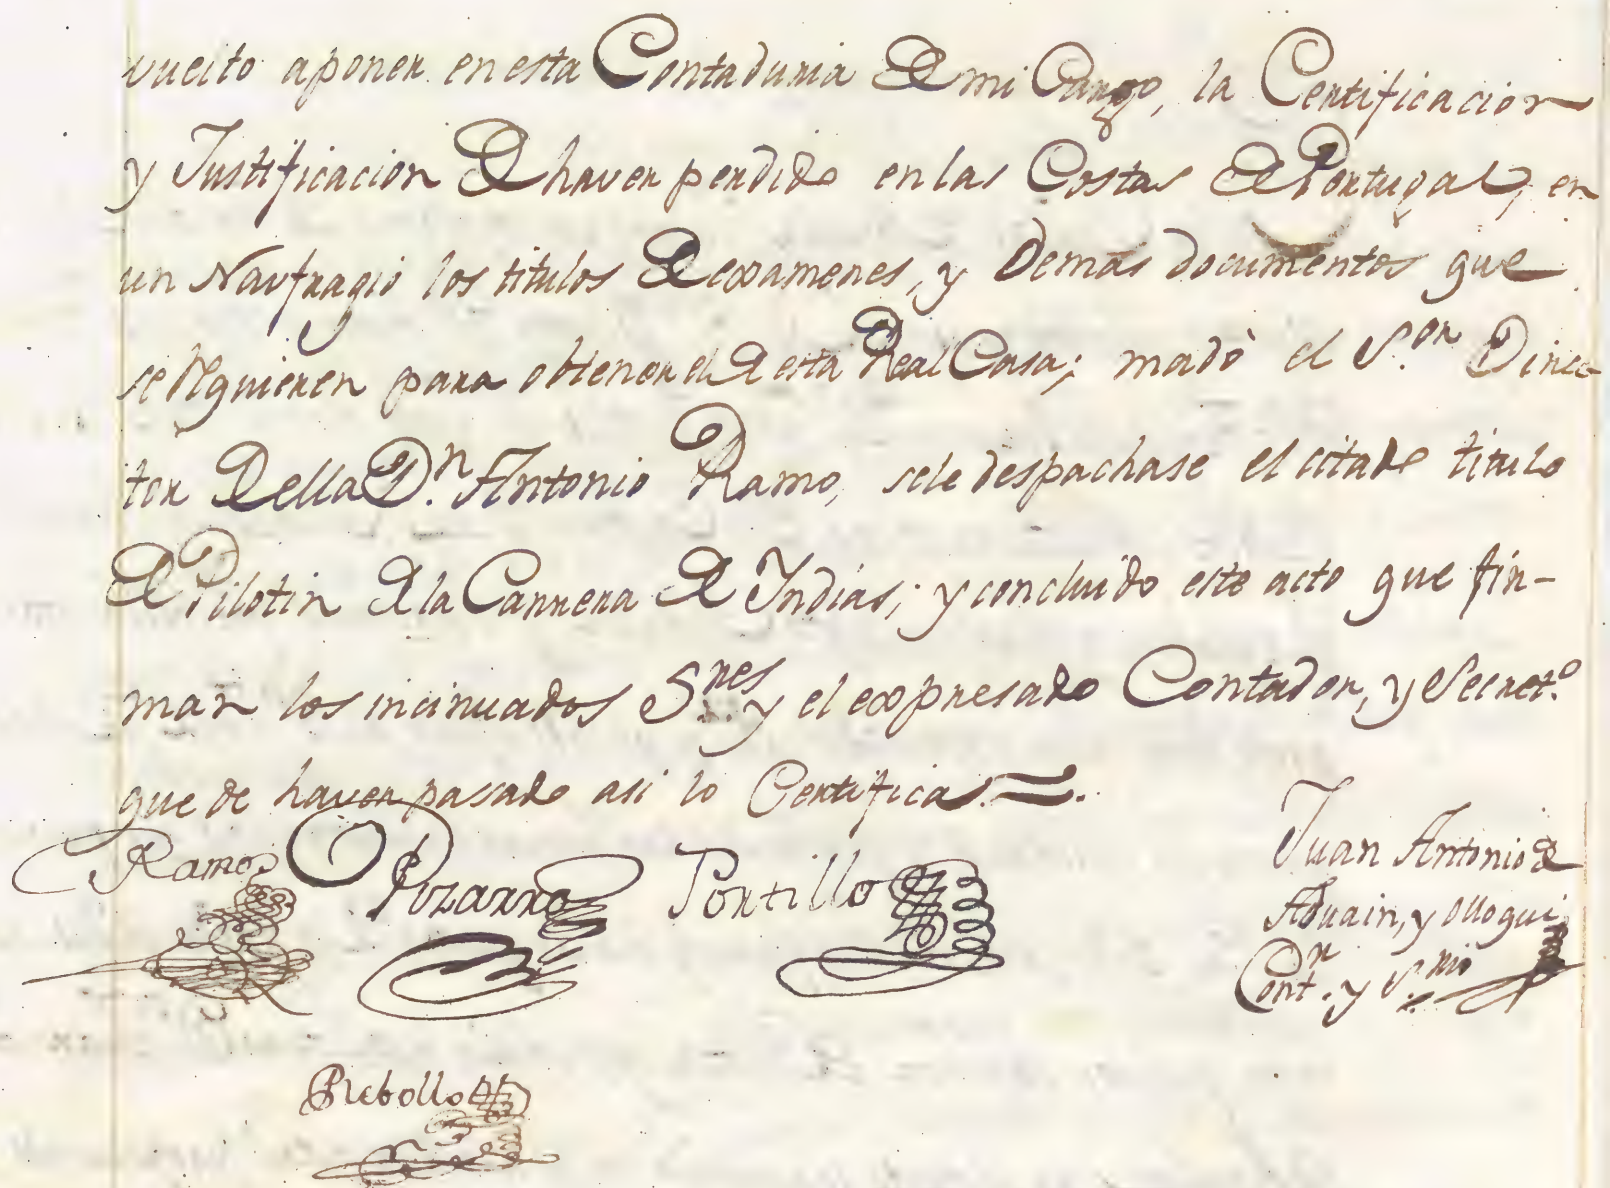 vuelto aponer en esta Contaduria de mi Cargo, la Certificacion
y Justificacion de haver perdido en las Costas de Portugal, en
un Naufragio los titulos de exâmenes, y demas documentos que
se requieren para obtener el de esta Real Casa; madò el S.or Direc-
tor de ella D.n Antonio Ramo, sele despachase el citado titulo
de Pilotin de la Carrera de Indias; y concluido este acto que fir-
man los incinuados S.res y el expresado Contador, y Secret.o
que de haver pasado asi lo Certifica.=.
Ramo Pizarro Portillo
Juan Antonio de
Aduain, y Olloqui
Cont.r y S.rio
Rebollo